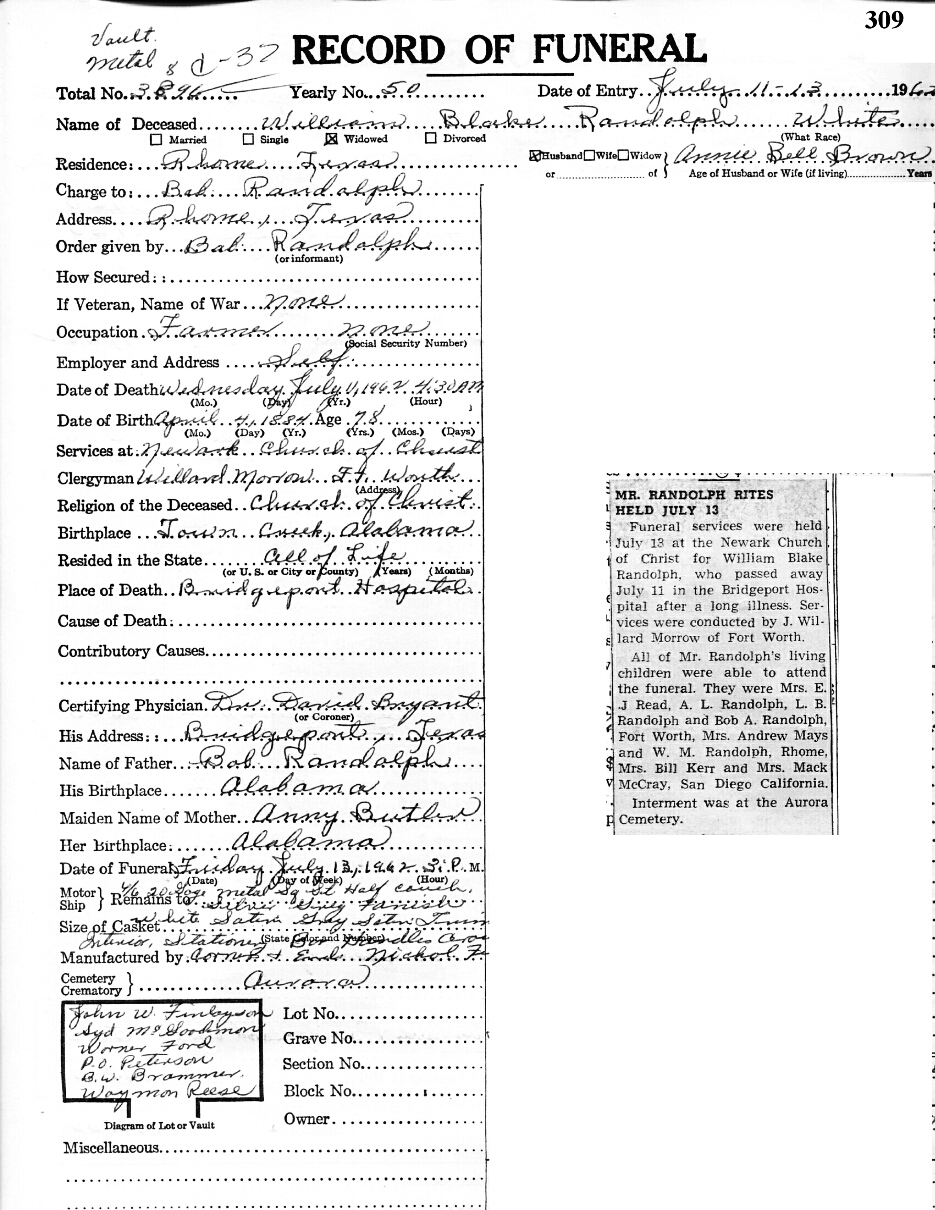 309
Vault.
Metal & d-37
RECORD OF FUNERAL
Total No. 3896 Yearly No. 50 Date of Entry July 11-13 1962
Name of Deceased William Blake Randolph White
(What Race)
☐ Married ☐ Single ☒ Widowed ☐ Divorced
Residence: Rhome Texas ☒Husband☐Wife☐Widow } Annie Bell Brown
or of } Age of Husband or Wife (if living) Years
Charge to: Bob Randolph
Address Rhome, Texas
Order given by Bob Randolph
(or informant)
How Secured:
If Veteran, Name of War None
Occupation Farmer none
(Social Security Number)
Employer and Address Self
Date of Death Wednesday July 11, 1962 4:30 AM
(Mo.) (Day) (Yr.) (Hour)
Date of Birth April 4, 1884 Age 78
(Mo.) (Day) (Yr.) (Yrs.) (Mos.) (Days)
Services at: Newark Church of Christ
Clergyman Willard Morrow Ft. Worth
(Address)
Religion of the Deceased Church of Christ
Birthplace Town Creek, Alabama
Resided in the State All of Life
(or U. S. or City or County) (Years) (Months)
Place of Death Bridgeport Hospital
Cause of Death:
Contributory Causes
Certifying Physician Dr. David Bryant
(or Coroner)
His Address: Bridgeport, Texas
Name of Father Bob Randolph
His Birthplace Alabama
Maiden Name of Mother Anny Butler
Her Birthplace: Alabama
Date of Funeral Friday July 13, 1962 3: P. M.
(Date) (Day of Week) (Hour)
Motor
Ship } Remains to 4/6 20 Gage metal Sq Half couch,
Silver Grey Finish
Size of Casket white Satin Gray Satin Trim
Interior, Stationary Handles
(State Color and Number)
Manufactured by
Cemetery
Crematory } Aurora
John W. Finlayson
Syd McGoodmon
Worner Ford
P.O. Peterson
B.W. Brammer.
Waymon Reese
Diagram of Lot or Vault
Lot No.
Grave No.
Section No.
Block No.
Owner
Miscellaneous
MR. RANDOLPH RITES
HELD JULY 13
Funeral services were held
July 13 at the Newark Church
of Christ for William Blake
Randolph, who passed away
July 11 in the Bridgeport Hos-
pital after a long illness. Ser-
vices were conducted by J. Wil-
lard Morrow of Fort Worth.
All of Mr. Randolph's living
children were able to attend
the funeral. They were Mrs. E.
J Read, A. L. Randolph, L. B.
Randolph and Bob A. Randolph,
Fort Worth, Mrs. Andrew Mays
and W. M. Randolph, Rhome,
Mrs. Bill Kerr and Mrs. Mack
McCray, San Diego California.
Interment was at the Aurora
Cemetery.